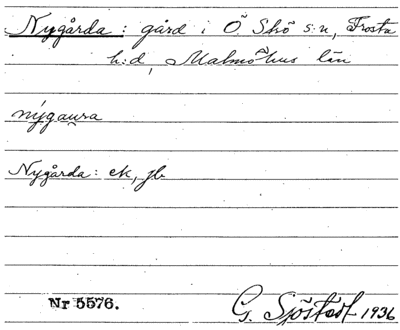 Nygårda : gård i Ö. Skö s:n, Frosta
h:d, Malmöhus län
nýgaura
Nygårda : ek, jb
Nr 5576.
G. Sjöstedt 1936